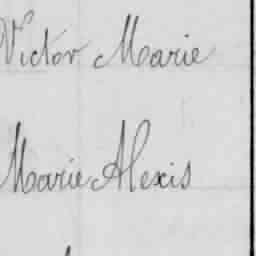 Victor Marie
Marie Alexis